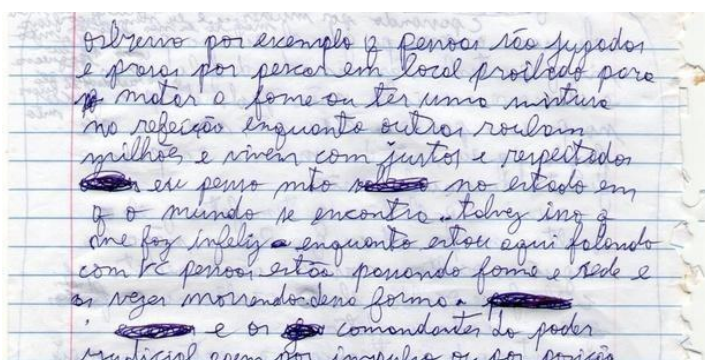 observo por exemplo q pessoas são jugados
e presos por pescar em local proibido para
matar a fome ou ter uma mistura
na refeição enquanto outros roubam
milhões e vivem com justos e respeitados
eu penso mto no estado em
q o mundo se encontra. talvez isso q
me faz infeliz enquanto estou aqui falando
com vc pessoas estão passando fome e sede e
as vezes morrendo dessa forma.
e os comandantes do poder
judicial agem por impulso ou por posição